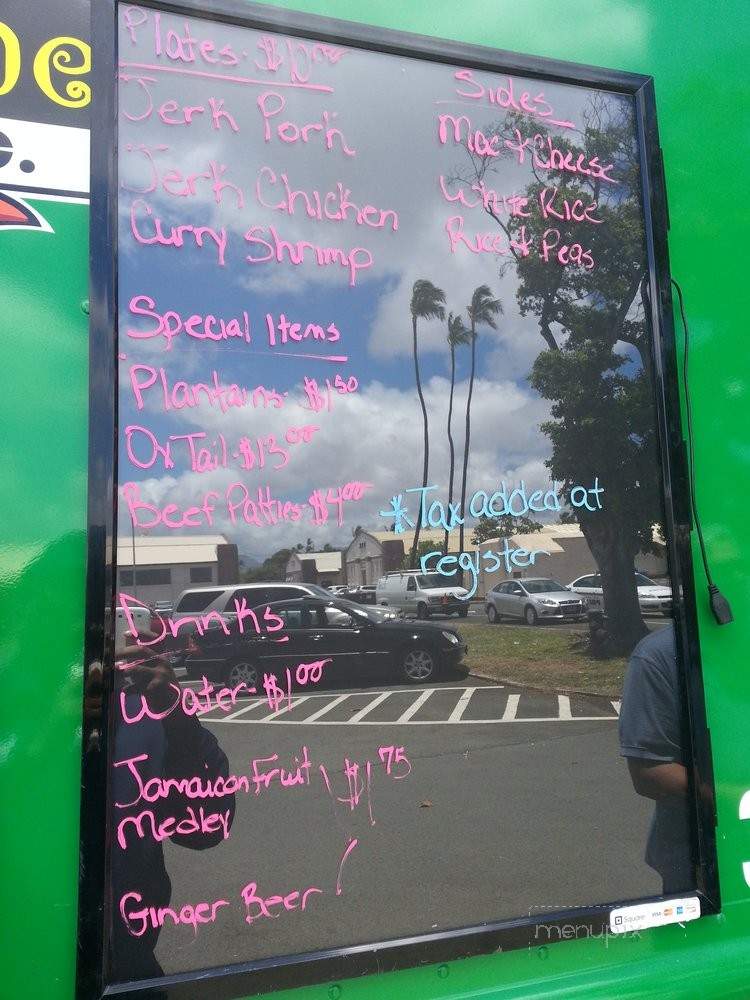 Plates-$10.00
Jerk Pork
Jerk Chicken
Curry Shrimp
Sides
Mac + Cheese
White Rice
Rice + Peas
Special Items
Plantains-$1.50
Ox Tail-$13.00
Beef Patties-$4.00
*Tax added at
register
Drinks
Water-$1.00
Jamaican Fruit
Medley
$1.75
Ginger Beer
Square VISA
menupix